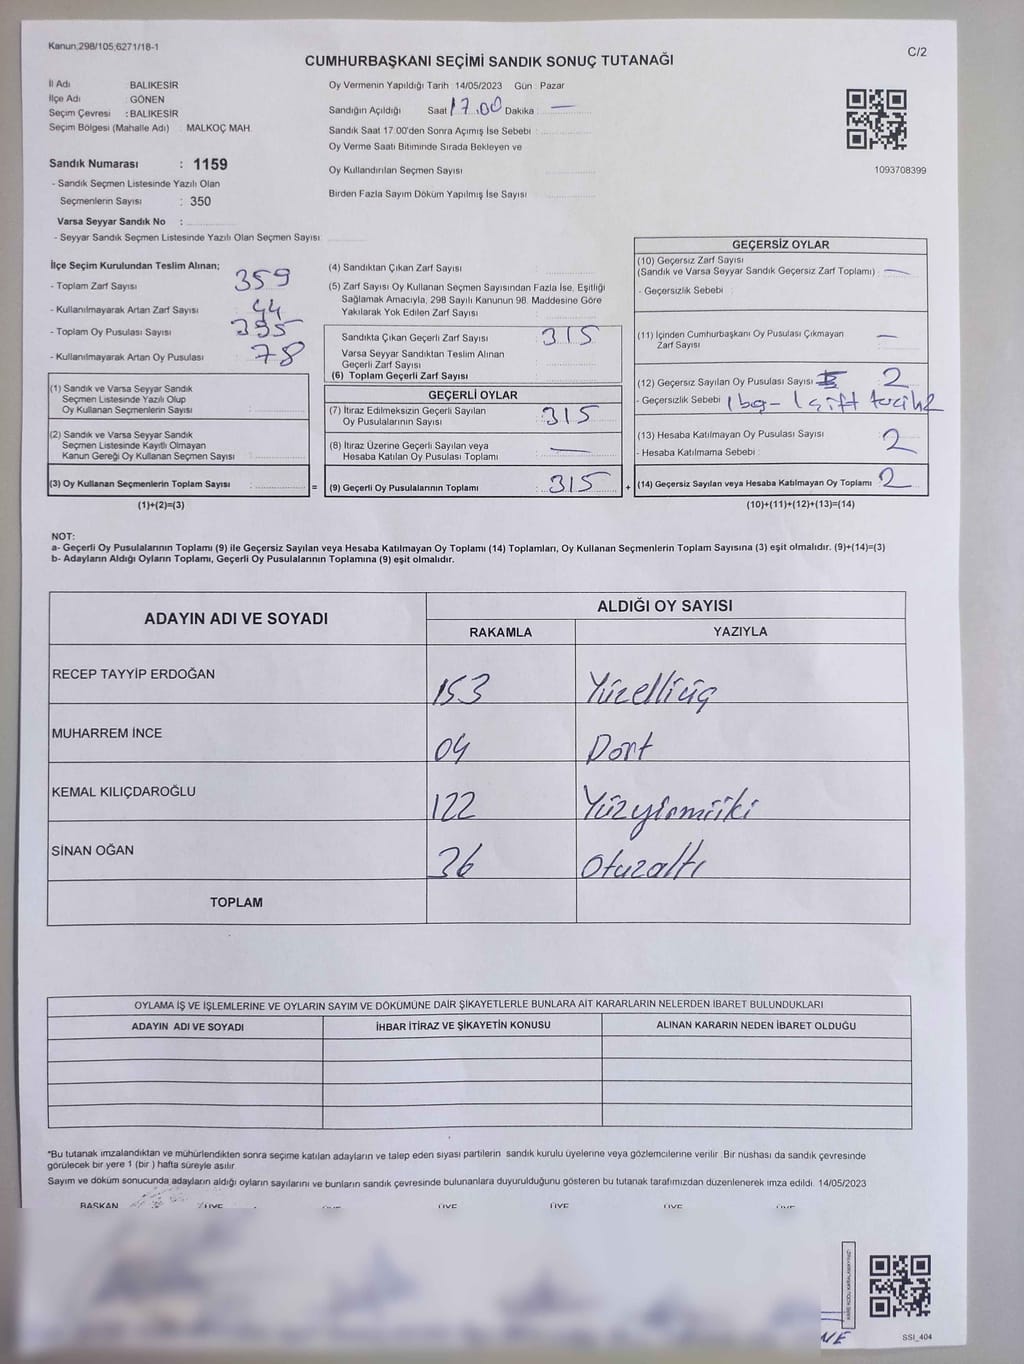 Kanun,298/105,6271/18-1
C/2
CUMHURBAŞKANI SEÇİMİ SANDIK SONUÇ TUTANAĞI
İl Adı BALIKESİR
İlçe Adı GÖNEN
Seçim Çevresi : BALIKESİR
Seçim Bölgesi (Mahalle Adı) : MALKOÇ MAH.
Sandık Numarası : 1159
- Sandık Seçmen Listesinde Yazılı Olan
Seçmenlerin Sayısı : 350
Varsa Seyyar Sandık No :
- Seyyar Sandık Seçmen Listesinde Yazılı Olan Seçmen Sayısı
Oy Vermenin Yapıldığı Tarih : 14/05/2023 Gün : Pazar
Sandığın Açıldığı Saat 17.00 Dakika : —
Sandık Saat 17.00'den Sonra Açımış İse Sebebi :
Oy Verme Saati Bitiminde Sırada Bekleyen ve
Oy Kullandırılan Seçmen Sayısı
Birden Fazla Sayım Döküm Yapılmış İse Sayısı
1093708399
İlçe Seçim Kurulundan Teslim Alınan;
- Toplam Zarf Sayısı 359
- Kullanılmayarak Artan Zarf Sayısı : 44
- Toplam Oy Pusulası Sayısı 395
- Kullanılmayarak Artan Oy Pusulası : 78
(1) Sandık ve Varsa Seyyar Sandık
Seçmen Listesinde Yazılı Olup
Oy Kullanan Seçmenlerin Sayısı :
(2) Sandık ve Varsa Seyyar Sandık
Seçmen Listesinde Kayıtlı Olmayan
Kanun Gereği Oy Kullanan Seçmen Sayısı
(3) Oy Kullanan Seçmenlerin Toplam Sayısı : =
(1)+(2)=(3)
(4) Sandıktan Çıkan Zarf Sayısı
(5) Zarf Sayısı Oy Kullanan Seçmen Sayısından Fazla İse, Eşitliği
Sağlamak Amacıyla, 298 Sayılı Kanunun 98. Maddesine Göre
Yakılarak Yok Edilen Zarf Sayısı
Sandıkta Çıkan Geçerli Zarf Sayısı 315
Varsa Seyyar Sandıktan Teslim Alınan
Geçerli Zarf Sayısı
(6) Toplam Geçerli Zarf Sayısı
GEÇERLİ OYLAR
(7) İtiraz Edilmeksizin Geçerli Sayılan
Oy Pusulalarının Sayısı 315
(8) İtiraz Üzerine Geçerli Sayılan veya
Hesaba Katılan Oy Pusulası Toplamı —
(9) Geçerli Oy Pusulalarının Toplamı : 315 +
GEÇERSİZ OYLAR
(10) Geçersiz Zarf Sayısı
(Sandık ve Varsa Seyyar Sandık Geçersiz Zarf Toplamı) : —
- Geçersizlik Sebebi :
(11) İçinden Cumhurbaşkanı Oy Pusulası Çıkmayan
Zarf Sayısı —
(12) Geçersiz Sayılan Oy Pusulası Sayısı 2
- Geçersizlik Sebebi 1 boş - 1 çift tercih
(13) Hesaba Katılmayan Oy Pusulası Sayısı 2
- Hesaba Katılmama Sebebi :
(14) Geçersiz Sayılan veya Hesaba Katılmayan Oy Toplamı : 2
(10)+(11)+(12)+(13)=(14)
NOT:
a- Geçerli Oy Pusulalarının Toplamı (9) ile Geçersiz Sayılan veya Hesaba Katılmayan Oy Toplamı (14) Toplamları, Oy Kullanan Seçmenlerin Toplam Sayısına (3) eşit olmalıdır. (9)+(14)=(3)
b- Adayların Aldığı Oyların Toplamı, Geçerli Oy Pusulalarının Toplamına (9) eşit olmalıdır.
ADAYIN ADI VE SOYADI
ALDIĞI OY SAYISI
RAKAMLA YAZIYLA
RECEP TAYYİP ERDOĞAN 153 Yüzelliüç
MUHARREM İNCE 04 Dört
KEMAL KILIÇDAROĞLU 122 Yüzyirmiiki
SİNAN OĞAN 36 Otuzaltı
TOPLAM
OYLAMA İŞ VE İŞLEMLERİNE VE OYLARIN SAYIM VE DÖKÜMÜNE DAİR ŞİKAYETLERLE BUNLARA AİT KARARLARIN NELERDEN İBARET BULUNDUKLARI
ADAYIN ADI VE SOYADI İHBAR İTİRAZ VE ŞİKAYETİN KONUSU ALINAN KARARIN NEDEN İBARET OLDUĞU
*Bu tutanak imzalandıktan ve mühürlendikten sonra seçime katılan adayların ve talep eden siyasi partilerin sandık kurulu üyelerine veya gözlemcilerine verilir. Bir nüshası da sandık çevresinde
görülecek bir yere 1 (bir) hafta süreyle asılır.
Sayım ve döküm sonucunda adayların aldığı oyların sayılarını ve bunların sandık çevresinde bulunanlara duyurulduğunu gösteren bu tutanak tarafımızdan düzenlenerek imza edildi. 14/05/2023
BAŞKAN ÜYE ÜYE ÜYE ÜYE ÜYE ÜYE
SSI_404